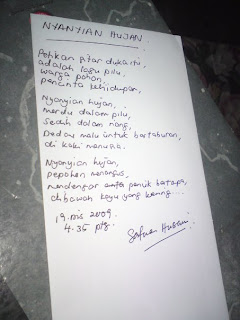 NYANYIAN HUJAN
Petikan gitar duka itu,
adalah lagu pilu,
warga pohon,
pencinta kehidupan,
Nyanyian hujan,
merdu dalam pilu,
sedih dalam riang,
Dedau malu untuk bertaburan,
di kaki manusia.
Nyanyian hujan,
pepohon menangis,
mendengar cerita penuh
dibawah kayu yang kering...
19. mis 2009.
4.35 ptg.